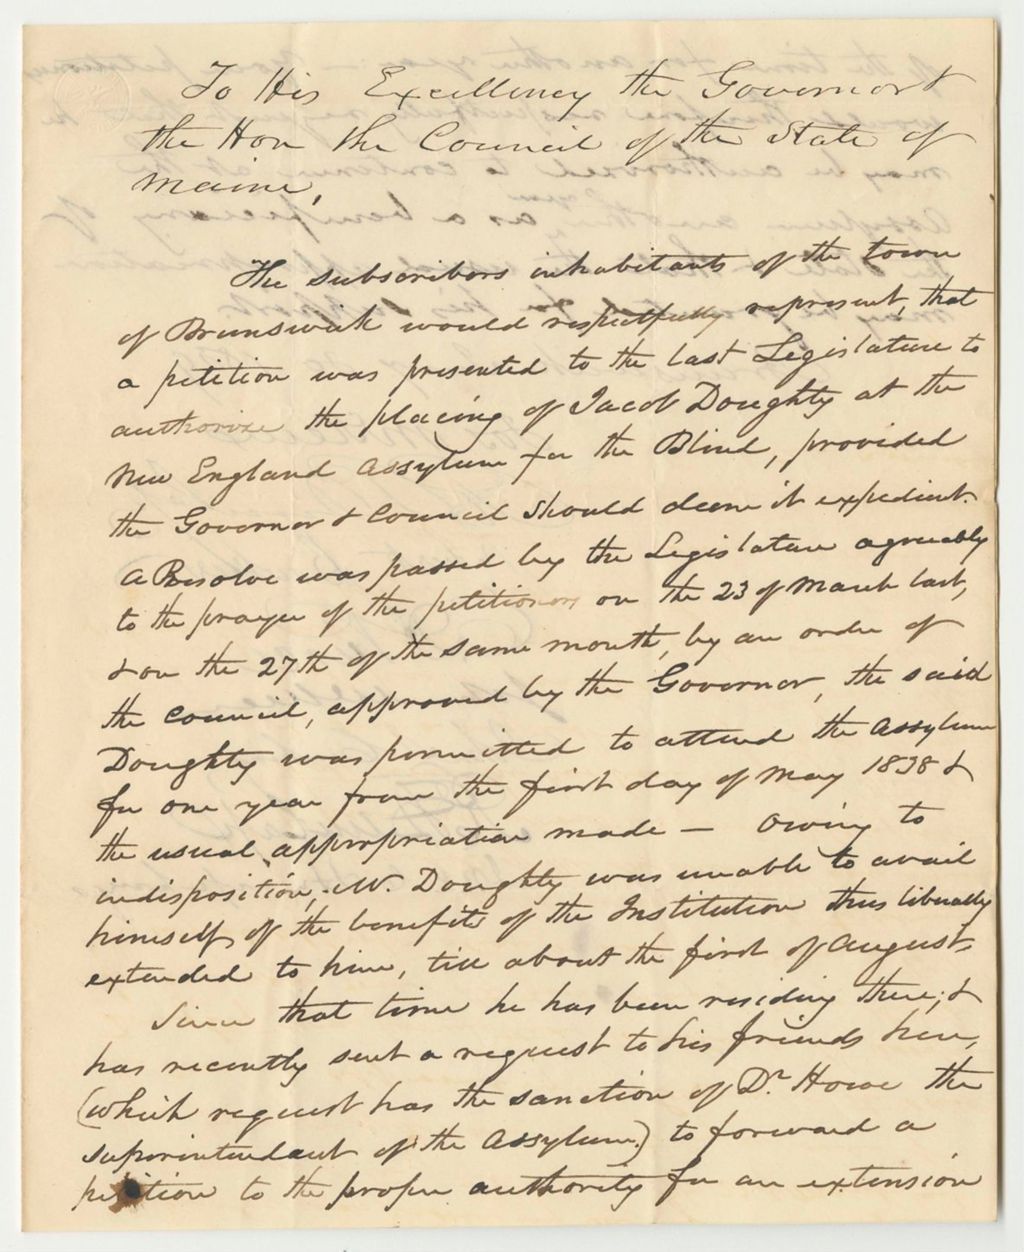 To His Excellency the Governor &
the Hon the Council of the State of
Maine,
The subscribers inhabitants of the town
of Brunswick would respectfully represent, that
a petition was presented to the last Legislature to
authorize the placing of Jacob Doughty at the
New England Assylum for the Blind, provided
the Governor & Council should deem it expedient.
A Resolve was passed by the Legislature agreeably
to the prayer of the petitioners on the 23 of March last,
& on the 27th of the same month, by an order of
the Council, approved by the Governor, the said
Doughty was permitted to attend the Assylum
for one year from the first day of May 1838 &
the usual appropriation made — Owing to
indisposition, Mr. Doughty was unable to avail
himself of the benefits of the Institution thus liberally
extended to him, till about the first of August.
Since that time he has been residing there; &
has recently sent a request to his friends here,
(which request has the sanction of Dr. Howe the
superintendant of the Assylum) to forward a
petition to the proper authority for an extension